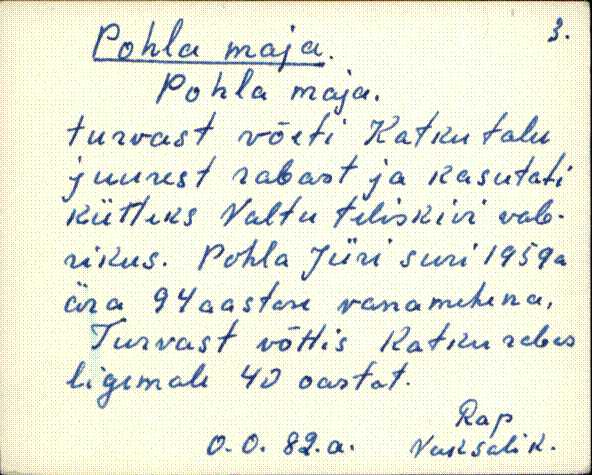 3.
Pohla maja.
Pohla maja.
turvast võeti Katku talu
juurest rabast ja kasutati
kütteks Valtu teliskivi vab-
rikus. Pohla Jüri suri 1959a
ära 94 aastase vanamehena.
Turvast võttis Katku rabas
ligemale 40 aastat.
Rap
O.O. 82.a. Vaksalik.